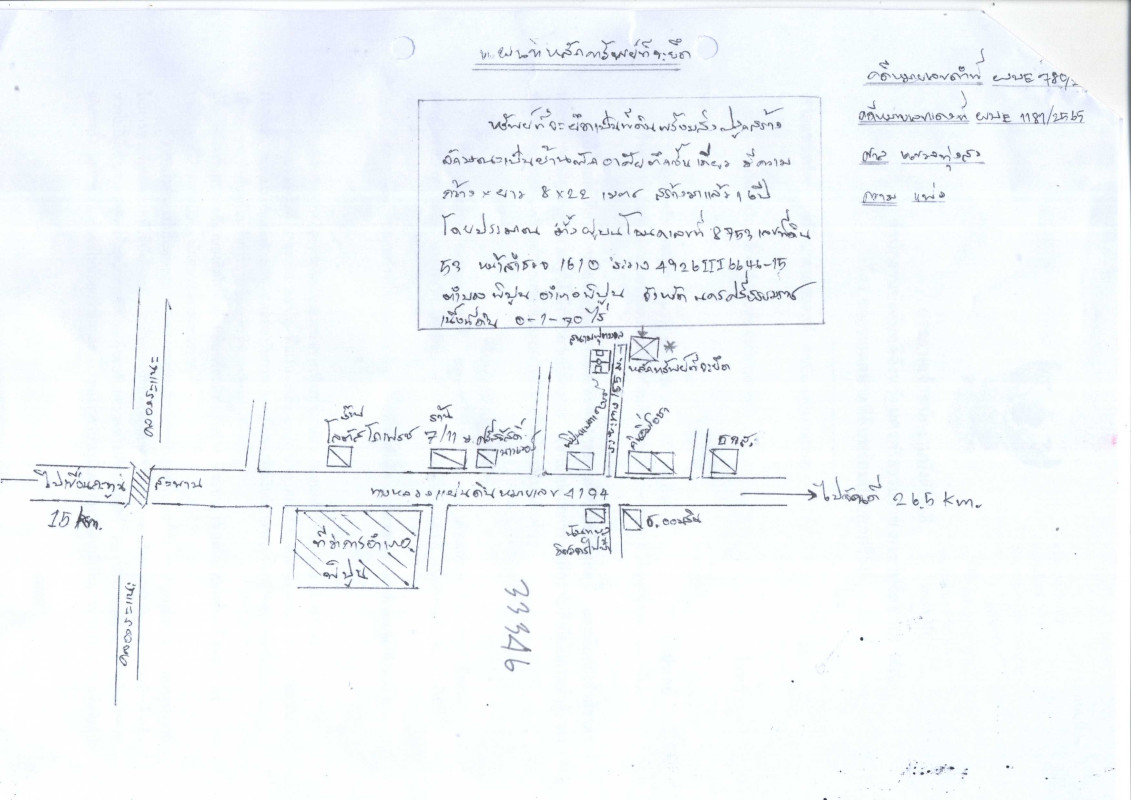 แผนที่หลักทรัพย์ที่จะยึด
คดีหมายเลขดำที่ ผบE 789/
คดีหมายเลขแดงที่ ผบE 1181/2565
ศาล แขวงทุ่งสง
ความ แพ่ง
ทรัพย์ที่จะยึดเป็นที่ดินพร้อมสิ่งปลูกสร้าง
ลักษณะเป็นบ้านพักอาศัยตึกชั้นเดียว มีความ
กว้าง × ยาว 8 × 22 เมตร สร้างมาแล้ว ปี
โดยประมาณ ตั้งอยู่บนโฉนดเลขที่ 8753 เลขที่ดิน
53 หน้าสำรวจ 1610 ระวาง 4926III6646-15
ตำบลพิปูน อำเภอพิปูน จังหวัด นครศรีธรรมราช
เนื้อที่ดิน 0-1-70 ไร่
สนามฟุตบอล
หลักทรัพย์ที่จะยึด
ระยะทาง 165 ม.
คลองระแนะ
ร้าน
โลตัส โกเฟรช
ร้าน
7/11
ธ.ก.ส.
ไปเขื่อนกะทูน
สะพาน
15 km.
ทางหลวงแผ่นดินหมายเลข 4194
ไปฉวัดเฉวียน 26.5 km.
ที่ว่าการอำเภอ
พิปูน
ธ.ออมสิน
คลองระแนะ
33346